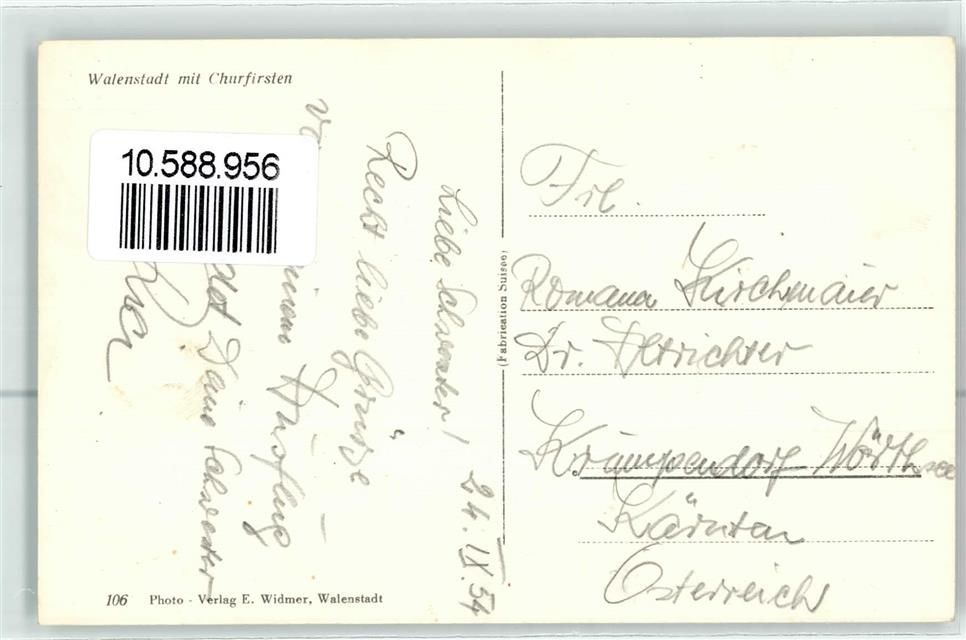 Walenstadt mit Churfirsten
10.588.956
24. IX. 54
Liebe Schwester!
Recht liebe Grüsse
Ausflug
Deine Schwester
(Fabrication Suisse)
Frl.
Romana Kirchmaier
Dr.
Krumpendorf Wörthsee
Kärnten
Österreich
106 Photo - Verlag E. Widmer, Walenstadt